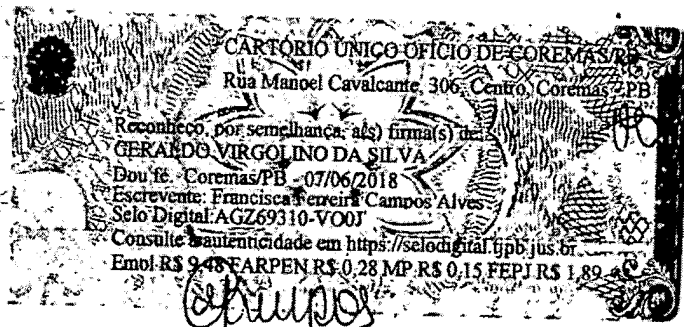 CARTÓRIO ÚNICO OFÍCIO DE COREMAS/PB
Rua Manoel Cavalcante, 306, Centro, Coremas - PB
Reconheço, por semelhança, a(s) firma(s) de:
GERALDO VIRGOLINO DA SILVA
Dou fé. Coremas/PB - 07/06/2018
Escrevente: Francisca Ferreira Campos Alves
Selo Digital:AGZ69310-VO0J
Consulte a autenticidade em https://selodigital.tjpb.jus.br
Emol R$ 9,48 FARPEN R$ 0,28 MP R$ 0,15 FEPJ R$ 1,89